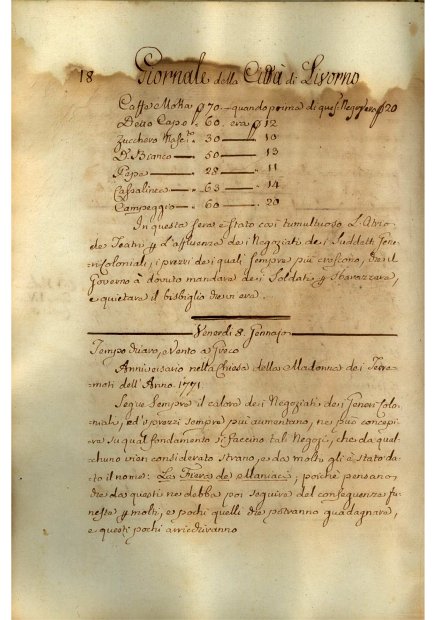 18 Giornale della Città di Livorno
Caffe Moka 70 quando prima di ques: Negozj era 20
Detto Capo 60. era 12
Zucchero 30 10
D.o Bianco 50 13
Pepe 28 11
Cassialinea 63 14
Campeggio 60 20
In questa sera è stato così tumultuoso L'Atrio
de Teatro l'affluenza dei Negoziati dei Suddetti Gene-
ri Coloniali, i prezzi dei quali sempre più crescono, che il
Governo à dovuto mandare dei Soldati sbarazzare,
e quietare il bisbiglio che vi era.
Venerdì 8. Gennajo
Tempo chiaro, e Vento a Greco
Anniversario nella Chiesa della Madonna dei Terre-
moti dell'Anno 1771.
Segue Sempre il calore dei Negoziati dei Generi Colo-
niali, ed i prezzi sempre più aumentano, ne può concepi-
re su qual fondamento si faccino tali Negozj, che da qual-
chuno vien considerato strano, e da molti gli è stato da-
to il nome: La Fiera de Maniaci, poichè pensano
che da questi ne debba poi seguire del conseguenze fu-
neste molti, e pochi quelli che potranno guadagnare,
e questi pochi arricchiranno